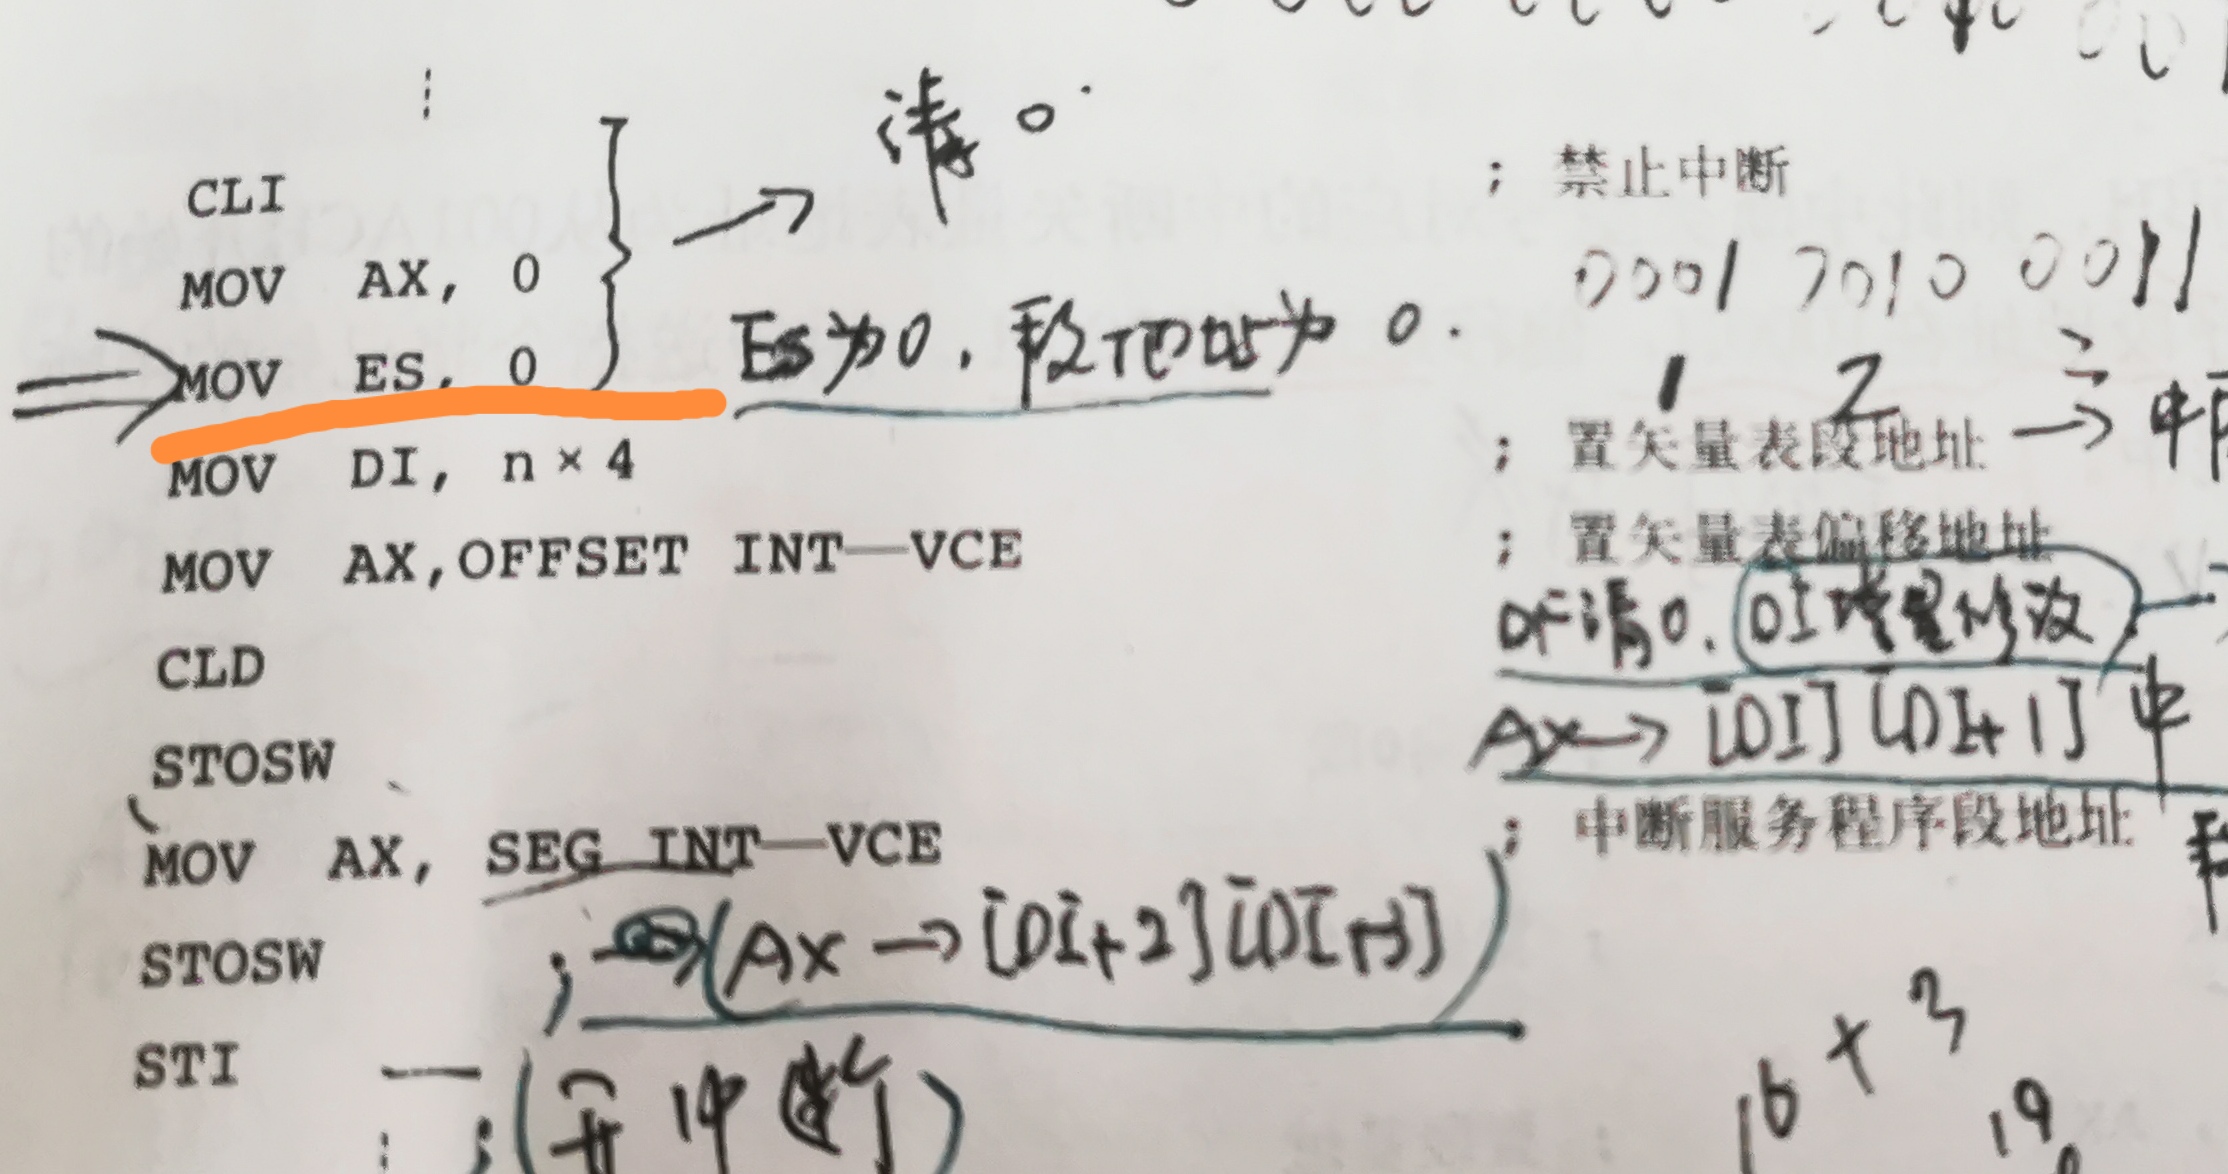 清0.
CLI ; 禁止中断
MOV AX, 0 0001 1010 0011
MOV ES, 0 Es为0,段地址为0.
1 2
; 置矢量表段地址 →
MOV DI, n×4
; 置矢量表偏移地址
MOV AX,OFFSET INT—VCE
DF清0. DI增量修改
CLD
AX→[DI][DI+1]中
STOSW
; 中断服务程序段地址
MOV AX, SEG INT—VCE
; (AX→[DI+2][DI+3])
STOSW
16+3
STI — ; (开中断)
19